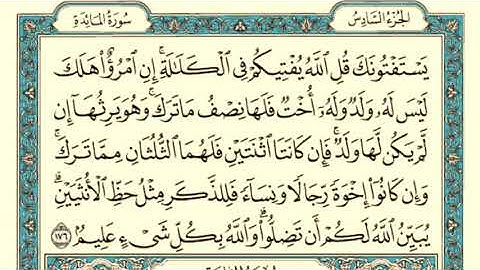 سُورَةُ المَائدَةِ
الجُزءُ السَّادِسُ
يَسۡتَفۡتُونَكَ قُلِ ٱللَّهُ يُفۡتِيكُمۡ فِي ٱلۡكَلَٰلَةِۚ إِنِ ٱمۡرُؤٌاْ هَلَكَ
لَيۡسَ لَهُۥ وَلَدٞ وَلَهُۥٓ أُخۡتٞ فَلَهَا نِصۡفُ مَا تَرَكَۚ وَهُوَ يَرِثُهَآ إِن
لَّمۡ يَكُن لَّهَا وَلَدٞۚ فَإِن كَانَتَا ٱثۡنَتَيۡنِ فَلَهُمَا ٱلثُّلُثَانِ مِمَّا تَرَكَۚ
وَإِن كَانُوٓاْ إِخۡوَةٗ رِّجَالٗا وَنِسَآءٗ فَلِلذَّكَرِ مِثۡلُ حَظِّ ٱلۡأُنثَيَيۡنِۗ
يُبَيِّنُ ٱللَّهُ لَكُمۡ أَن تَضِلُّواْۗ وَٱللَّهُ بِكُلِّ شَيۡءٍ عَلِيمُۢ ١٧٦